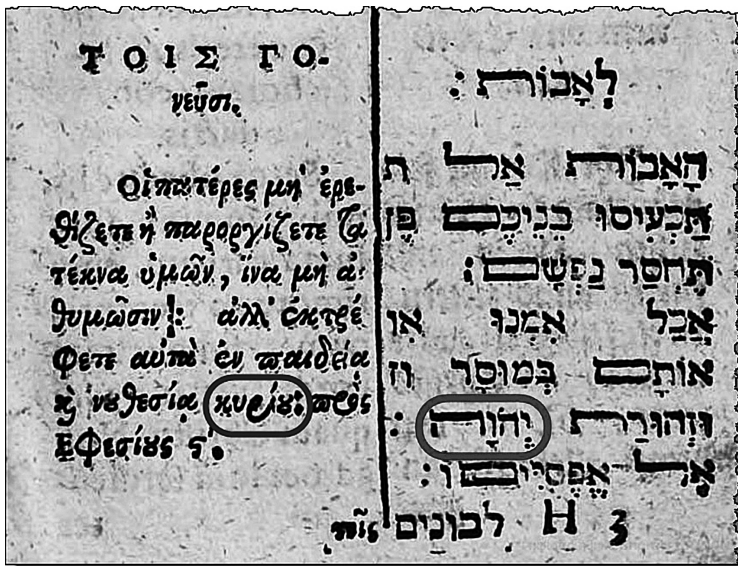 ΤΟΙΣ ΓΟ-
νεῦσι.
Οἱ πατέρες μὴ ἐρε-
θίζετε ἢ παροργίζετε τὰ
τέκνα ὑμῶν, ἵνα μὴ ἀ-
θυμῶσιν: ἀλλ' ἐκτρέ
φετε αὐτὰ ἐν παιδεία
κὶ νουθεσία κυρίου: πρὸς
Εφεσίους ς'.
לְאָבוֹת:
הָאָבוֹת אַל ת
תַּכְעִיסוּ בְנֵיכֶם פֶּן
תֶּחְסַר נַפְשָׁם:
אֲבָל אִמְנוּ או
אוֹתָם בְּמוּסָר וז
וְזְהוּרַת יְהֹוָה:
אֶל אֶפֶסִיִּים ו:
παῖς לבונים H 3